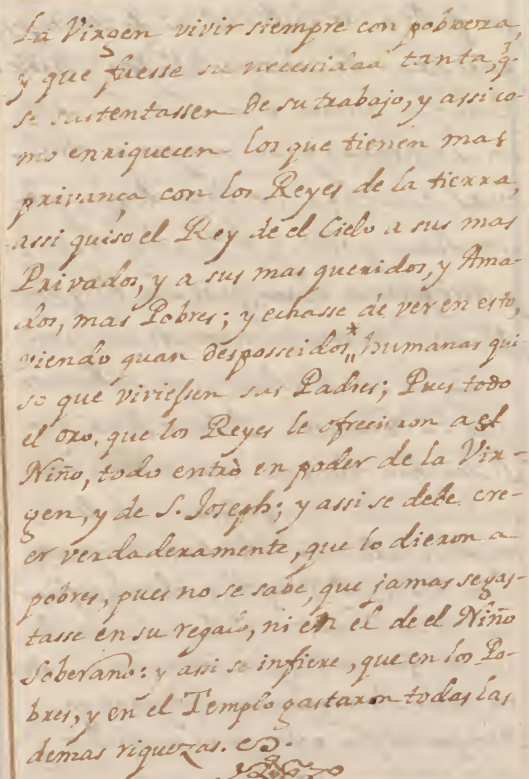 La Virgen vivir siempre con pobreza,
y que fuesse su necessidad tanta, q̃.
se sustentassen de su trabajo, y assi co-
mo enriquecen los que tienen mas
privança con los Reyes de la tierra,
assi quiso el Rey de el Cielo a sus mas
Privados, y a sus mas queridos, y Ama-
dos, mas Pobres; y echasse de ver en esto,
viendo quan desposseidos*,, humanas qui-
so que viviessen sus Padres; Pues todo
el oro, que los Reyes le ofrecieron a el
Niño, todo entrò en poder de la Vir-
gen, y de S. Joseph; y assi se debe cre-
er verdaderamente, que lo dieron a
pobres, pues no se sabe, que jamas se gas-
tasse en su regalo, ni en el de el Niño
Soberano: y assi se infiere, que en los Po-
bres, y en el Templo gastaron todas las
demas riquezas.